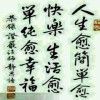 人生愈簡單愈
快樂生活愈
單純愈幸福